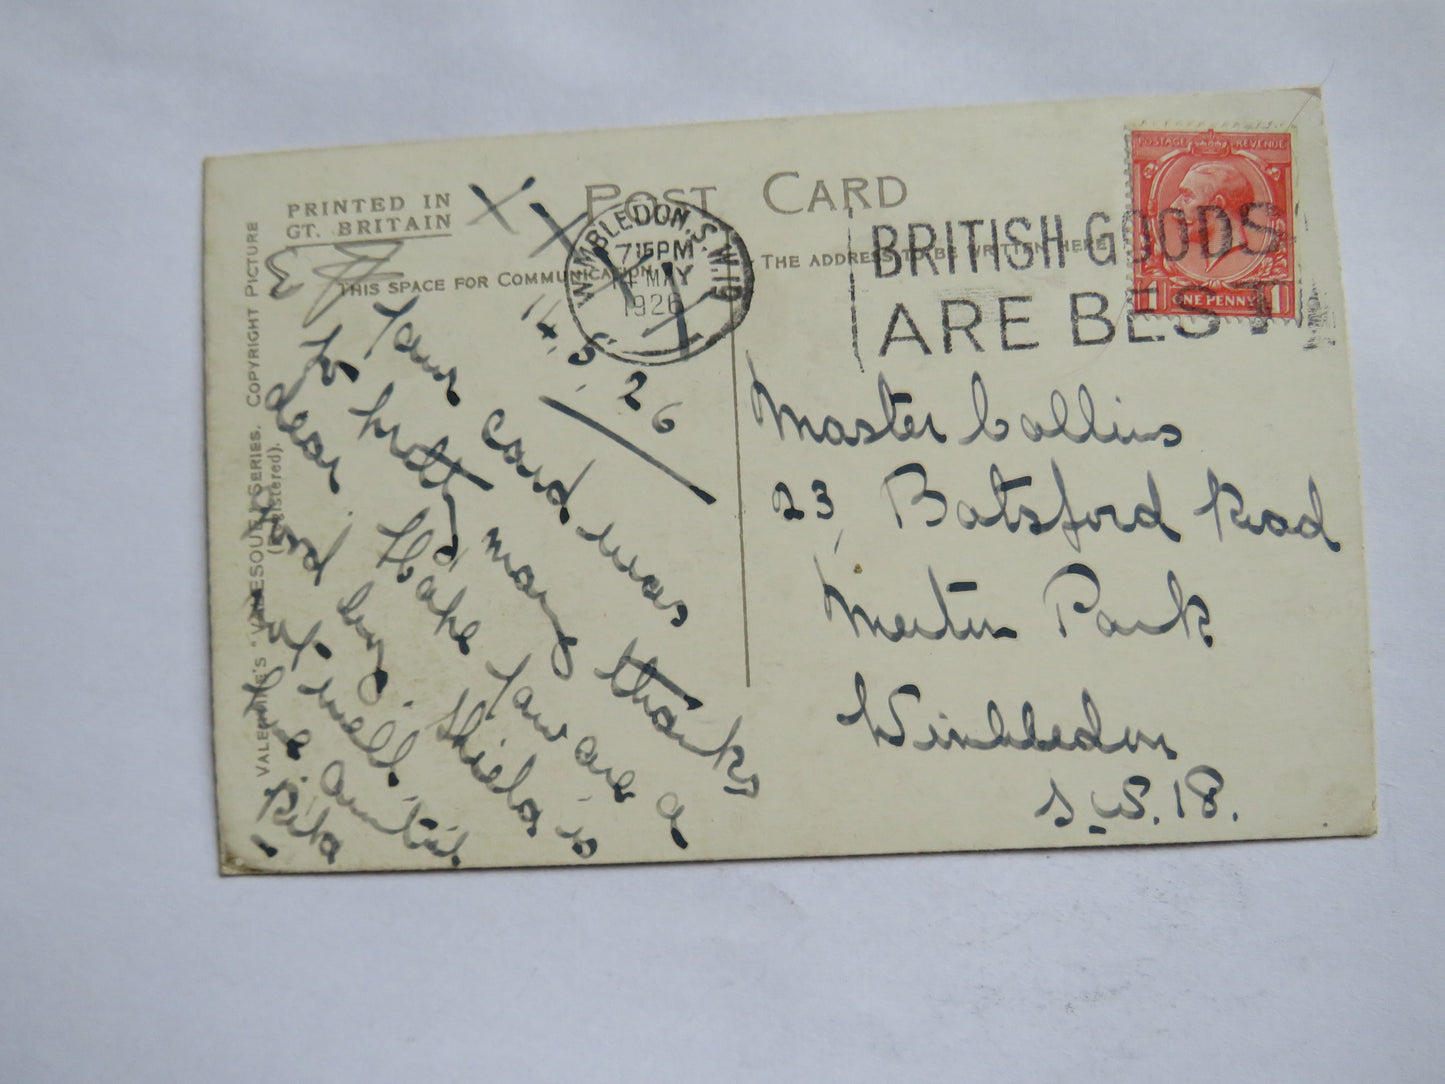 PRINTED IN
GT. BRITAIN
POST CARD
THIS SPACE FOR COMMUNICATION
THE ADDRESS TO BE WRITTEN HERE
VALENTINE'S "VALESQUE" SERIES. COPYRIGHT PICTURE
(Registered).
WIMBLEDON. S.W.19
7 15 PM
14 MAY
1926
BRITISH GOODS
ARE BEST
POSTAGE REVENUE
1 ONE PENNY 1
3
X X X X
14.5.26
Your card was
so pretty many thanks
dear. Hope you are a
good boy. Shields is
well.
Auntie
Rita
Master Collins
23, Batsford Road
Merton Park
Wimbledon
S.S.18.